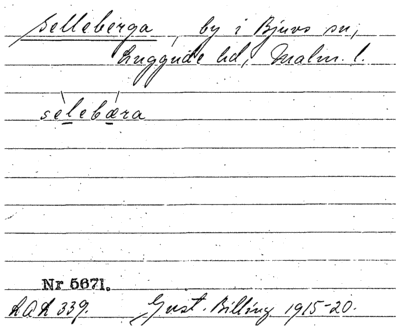 Selleberga, by i Bjuvs sn,
Luggude hd, Malm. l.
selebæra
Nr 5671.
AQA 339. Gust. Billing 1915-20.